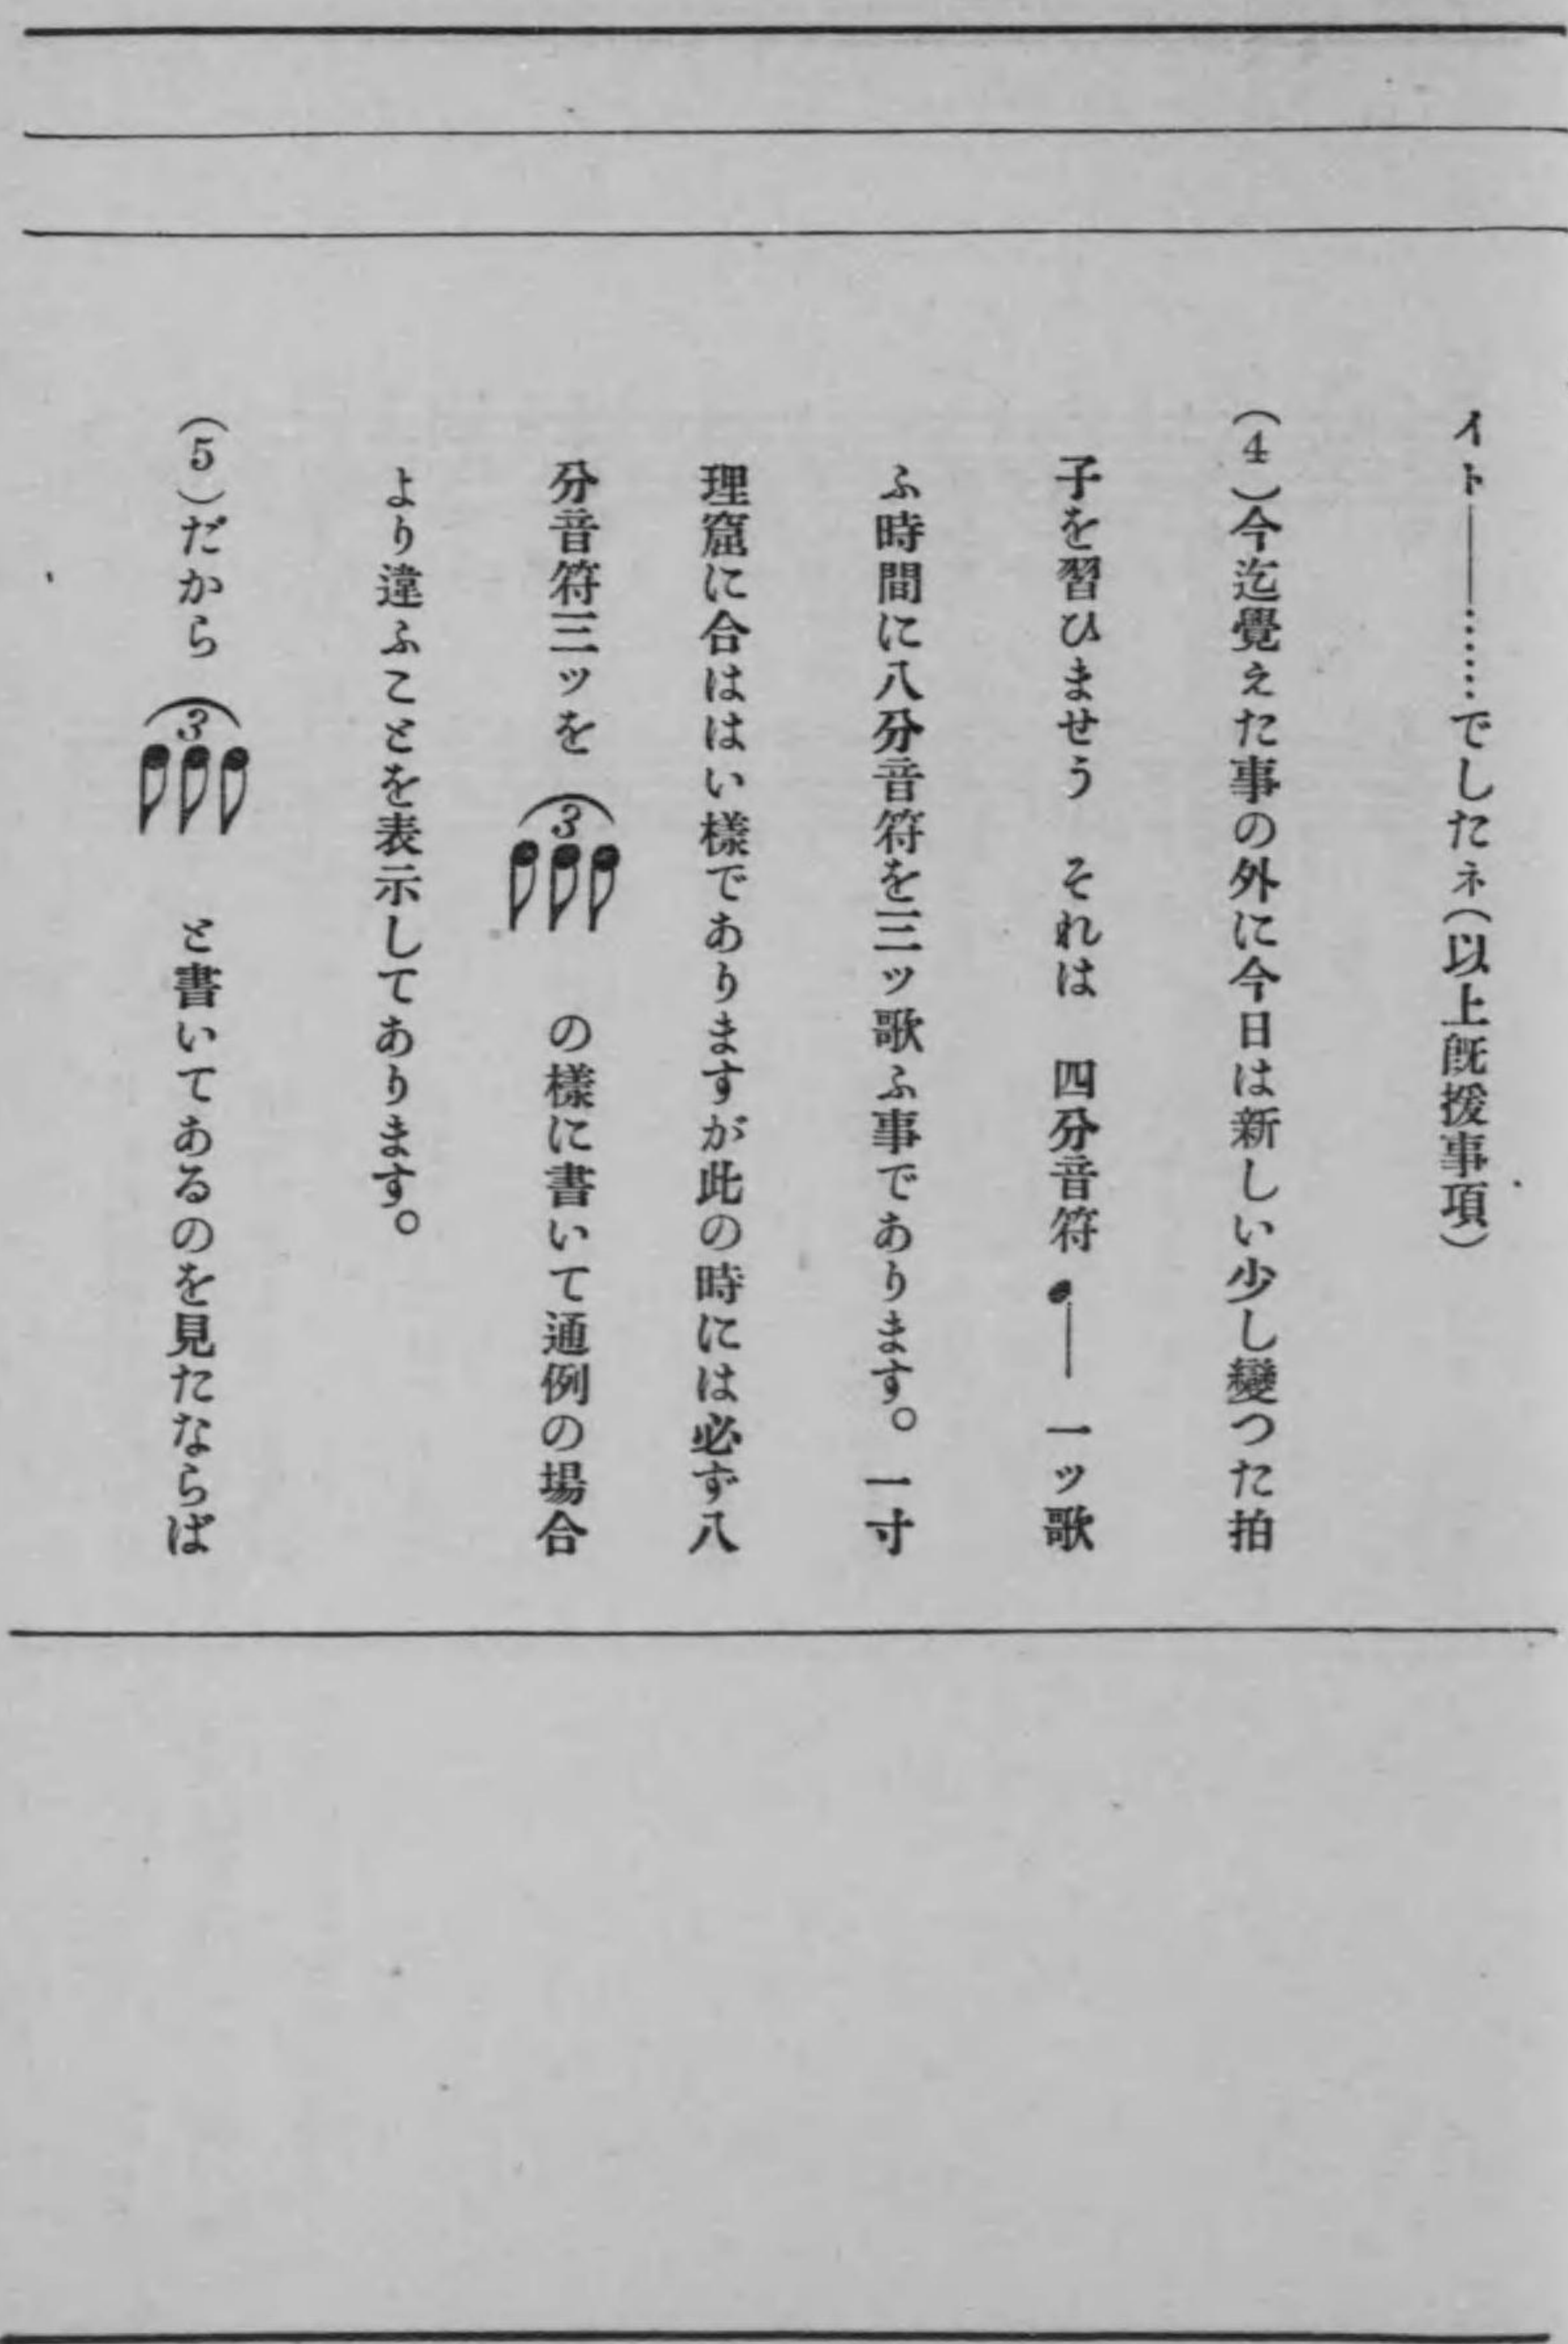 イト――……でしたネ(以上既授事項)
(4)今迄覺えた事の外に今日は新しい少し變つた拍
子を習ひませう　それは　四分音符　一ッ歌
ふ時間に八分音符を三ッ歌ふ事であります。一寸
理窟に合ははい樣でありますが此の時には必ず八
分音符三ッを 3 の樣に書いて通例の場合
より違ふことを表示してあります。
(5)だから 3 と書いてあるのを見たならば